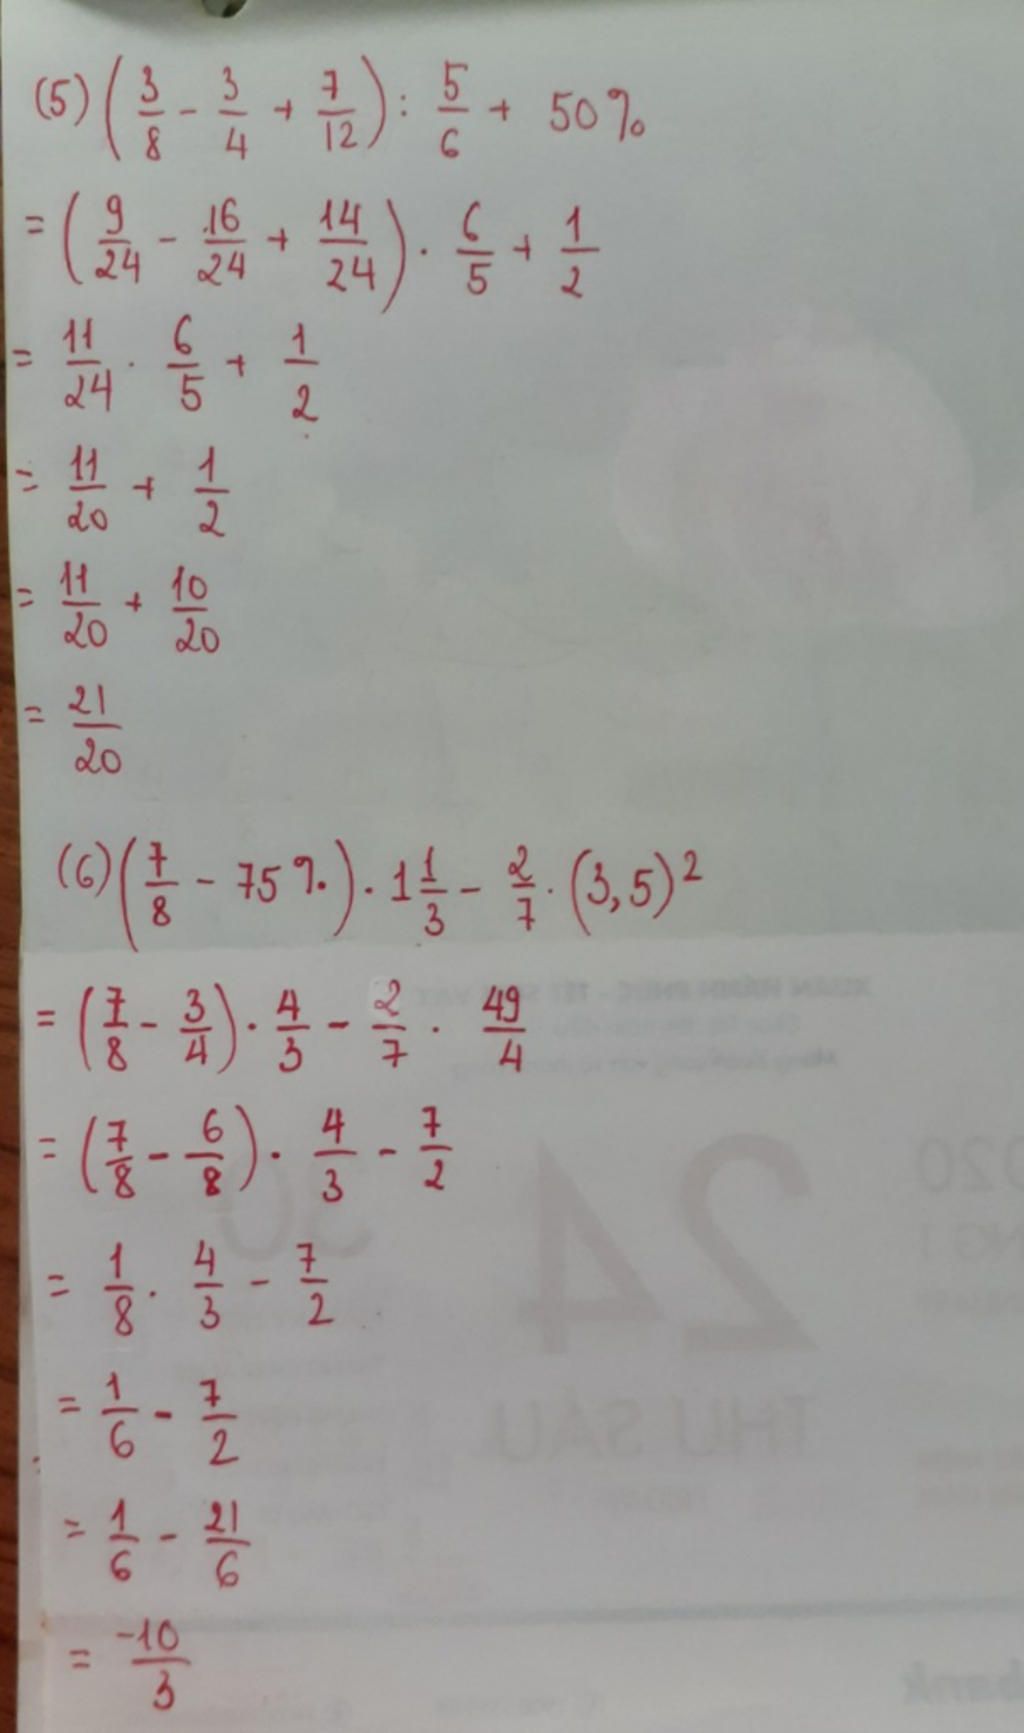 (5) (3/8 - 3/4 + 7/12) : 5/6 + 50%
= (9/24 - 16/24 + 14/24) . 6/5 + 1/2
= 11/24 . 6/5 + 1/2
= 11/20 + 1/2
= 11/20 + 10/20
= 21/20
(6) (7/8 - 75%) . 1 1/3 - 2/7 . (3,5)²
= (7/8 - 3/4) . 4/3 - 2/7 . 49/4
= (7/8 - 6/8) . 4/3 - 7/2
= 1/8 . 4/3 - 7/2
= 1/6 - 7/2
= 1/6 - 21/6
= -10/3
24
THỨ SÁU